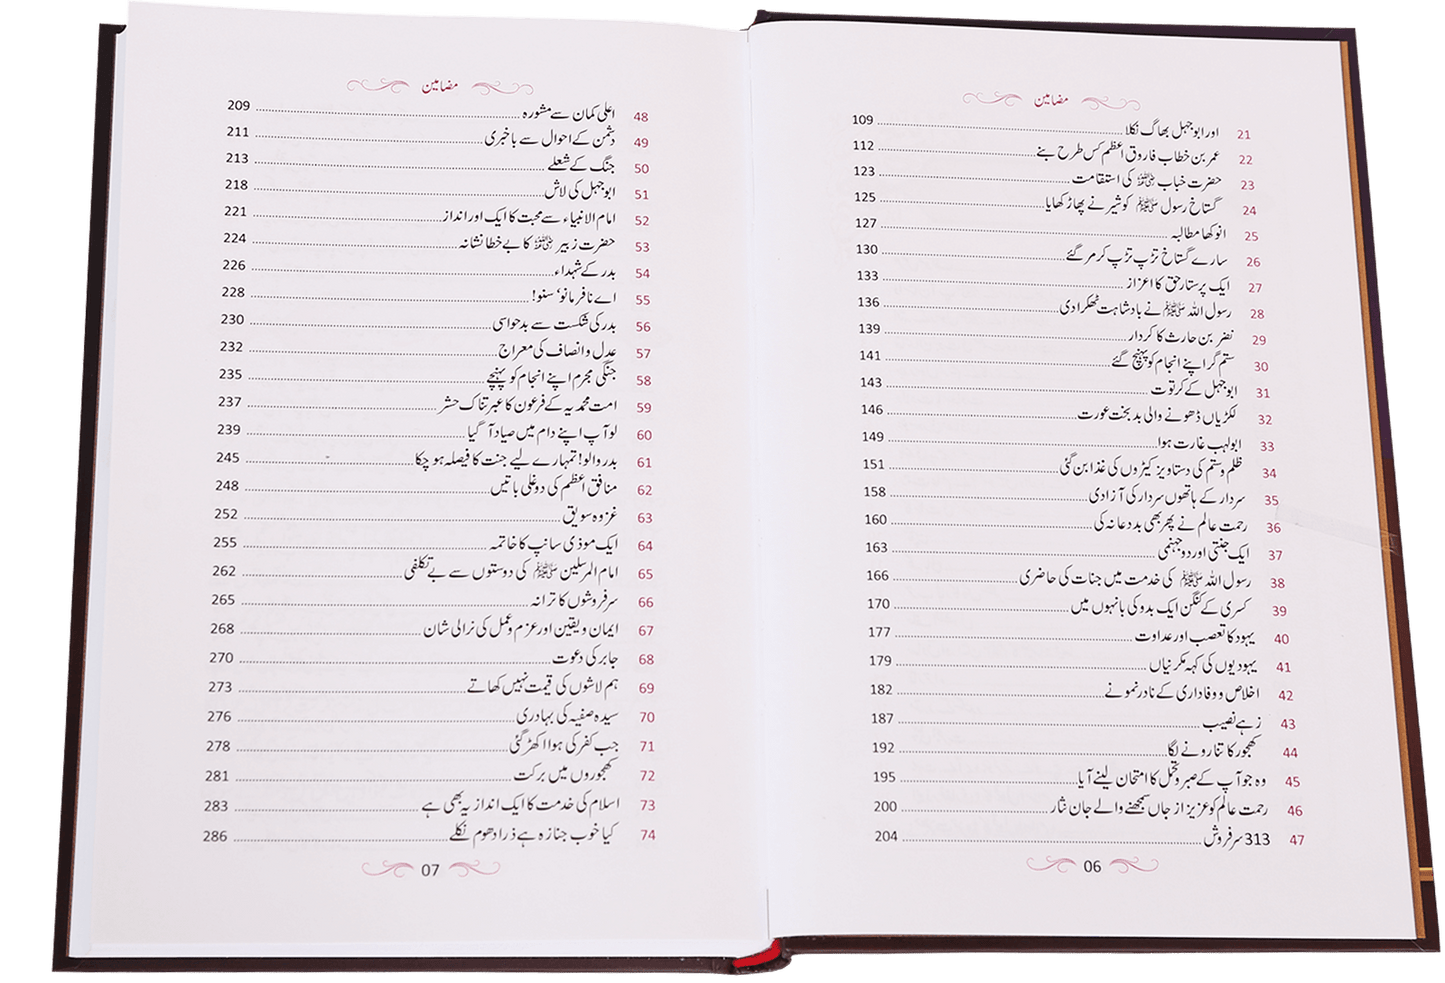 مضامین
21 اور ابو جہل بھاگ نکلا 109
22 عمر بن خطاب فاروق اعظم کس طرح بنے 112
23 حضرت خباب رضی اللہ عنہ کی استقامت 123
24 گستاخ رسول ﷺ کو شیر نے پھاڑ کھایا 125
25 انوکھا مطالبہ 127
26 سارے گستاخ تڑپ تڑپ کر مر گئے 130
27 ایک پرستار حق کا اعزاز 133
28 رسول اللہ ﷺ نے بادشاہت ٹھکرا دی 136
29 نضر بن حارث کا کردار 139
30 ستم گر اپنے انجام کو پہنچ گئے 141
31 ابو جہل کے کرتوت 143
32 لکڑیاں ڈھونے والی بدبخت عورت 146
33 ابولہب غارت ہوا 149
34 ظلم و ستم کی دستاویز کیڑوں کی غذا بن گئی 151
35 سردار کے ہاتھوں سردار کی آزادی 158
36 رحمت عالم نے پھر بھی بددعا نہ کی 160
37 ایک جنتی اور دو جہنمی 163
38 رسول اللہ ﷺ کی خدمت میں جنات کی حاضری 166
39 کسری کے کنگن ایک بدو کی بانہوں میں 170
40 یہود کا تعصب اور عداوت 177
41 یہودیوں کی کہہ مکرنیاں 179
42 اخلاص و وفاداری کے نادر نمونے 182
43 زہے نصیب 187
44 کھجور کا تنا رونے لگا 192
45 وہ جو آپ کے صبر و تحمل کا امتحان لینے آیا 195
46 رحمت عالم کو عزیز از جاں سمجھنے والے جان نثار 200
47 313 سرفروش 204
06
مضامین
48 اعلی کمان سے مشورہ 209
49 دشمن کے احوال سے باخبری 211
50 جنگ کے شعلے 213
51 ابو جہل کی لاش 218
52 امام الانبیاء سے محبت کا ایک اور انداز 221
53 حضرت زبیر رضی اللہ عنہ کا بے خطا نشانہ 224
54 بدر کے شہداء 226
55 اے نافرمانو‘ سنو! 228
56 بدر کی شکست سے بدحواسی 230
57 عدل و انصاف کی معراج 232
58 جنگی مجرم اپنے انجام کو پہنچے 235
59 امت محمدیہ کے فرعون کا عبرتناک حشر 237
60 لو آپ اپنے دام میں صیاد آ گیا 239
61 بدر والو! تمہارے لیے جنت کا فیصلہ ہو چکا 245
62 منافق اعظم کی دوغلی باتیں 248
63 غزوہ سویق 252
64 ایک موذی سانپ کا خاتمہ 255
65 امام المرسلین ﷺ کی دوستوں سے بے تکلفی 262
66 سرفروشوں کا ترانہ 265
67 ایمان و یقین اور عزم و عمل کی نرالی شان 268
68 جابر کی دعوت 270
69 ہم لاشوں کی قیمت نہیں کھاتے 273
70 سیدہ صفیہ کی بہادری 276
71 جب کفر کی ہوا اکھڑ گئی 278
72 کھجوروں میں برکت 281
73 اسلام کی خدمت کا ایک انداز یہ بھی ہے 283
74 کیا خوب جنازہ ہے ذرا دھوم نکلے 286
07